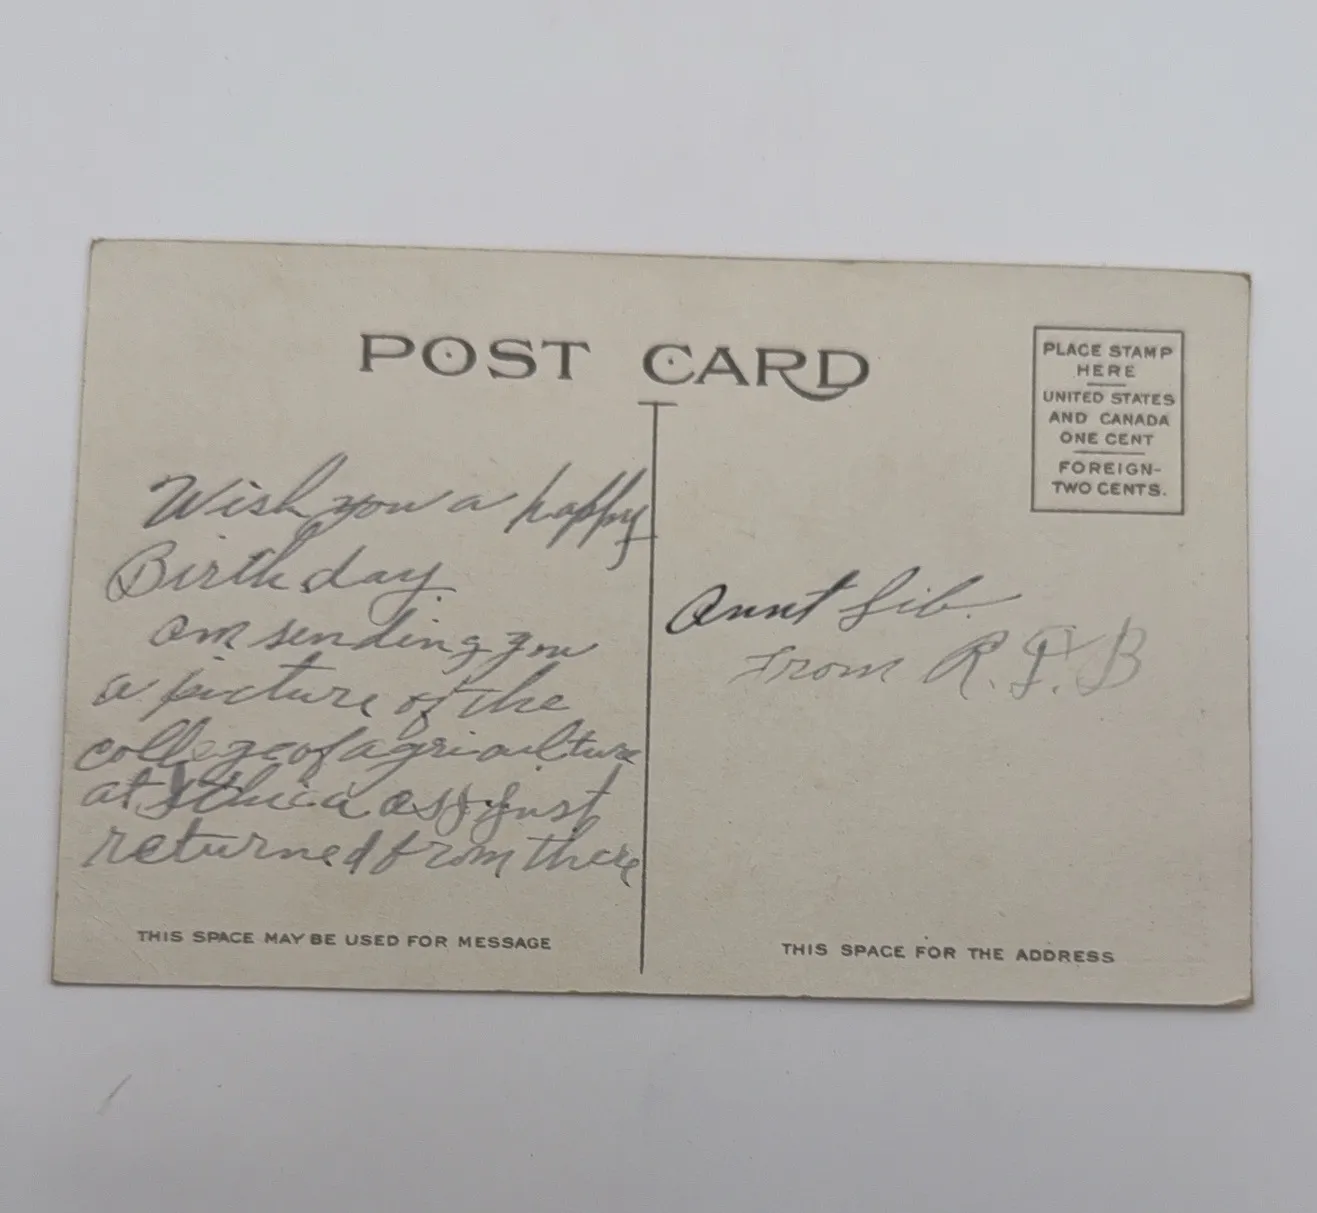 POST CARD
PLACE STAMP
HERE
UNITED STATES
AND CANADA
ONE CENT
FOREIGN-
TWO CENTS.
Wish you a happy
Birthday.
am sending you
a picture of the
college of agriculture
at Ithica as I just
returned from there
Aunt Lib.
From R.F.B
THIS SPACE MAY BE USED FOR MESSAGE
THIS SPACE FOR THE ADDRESS